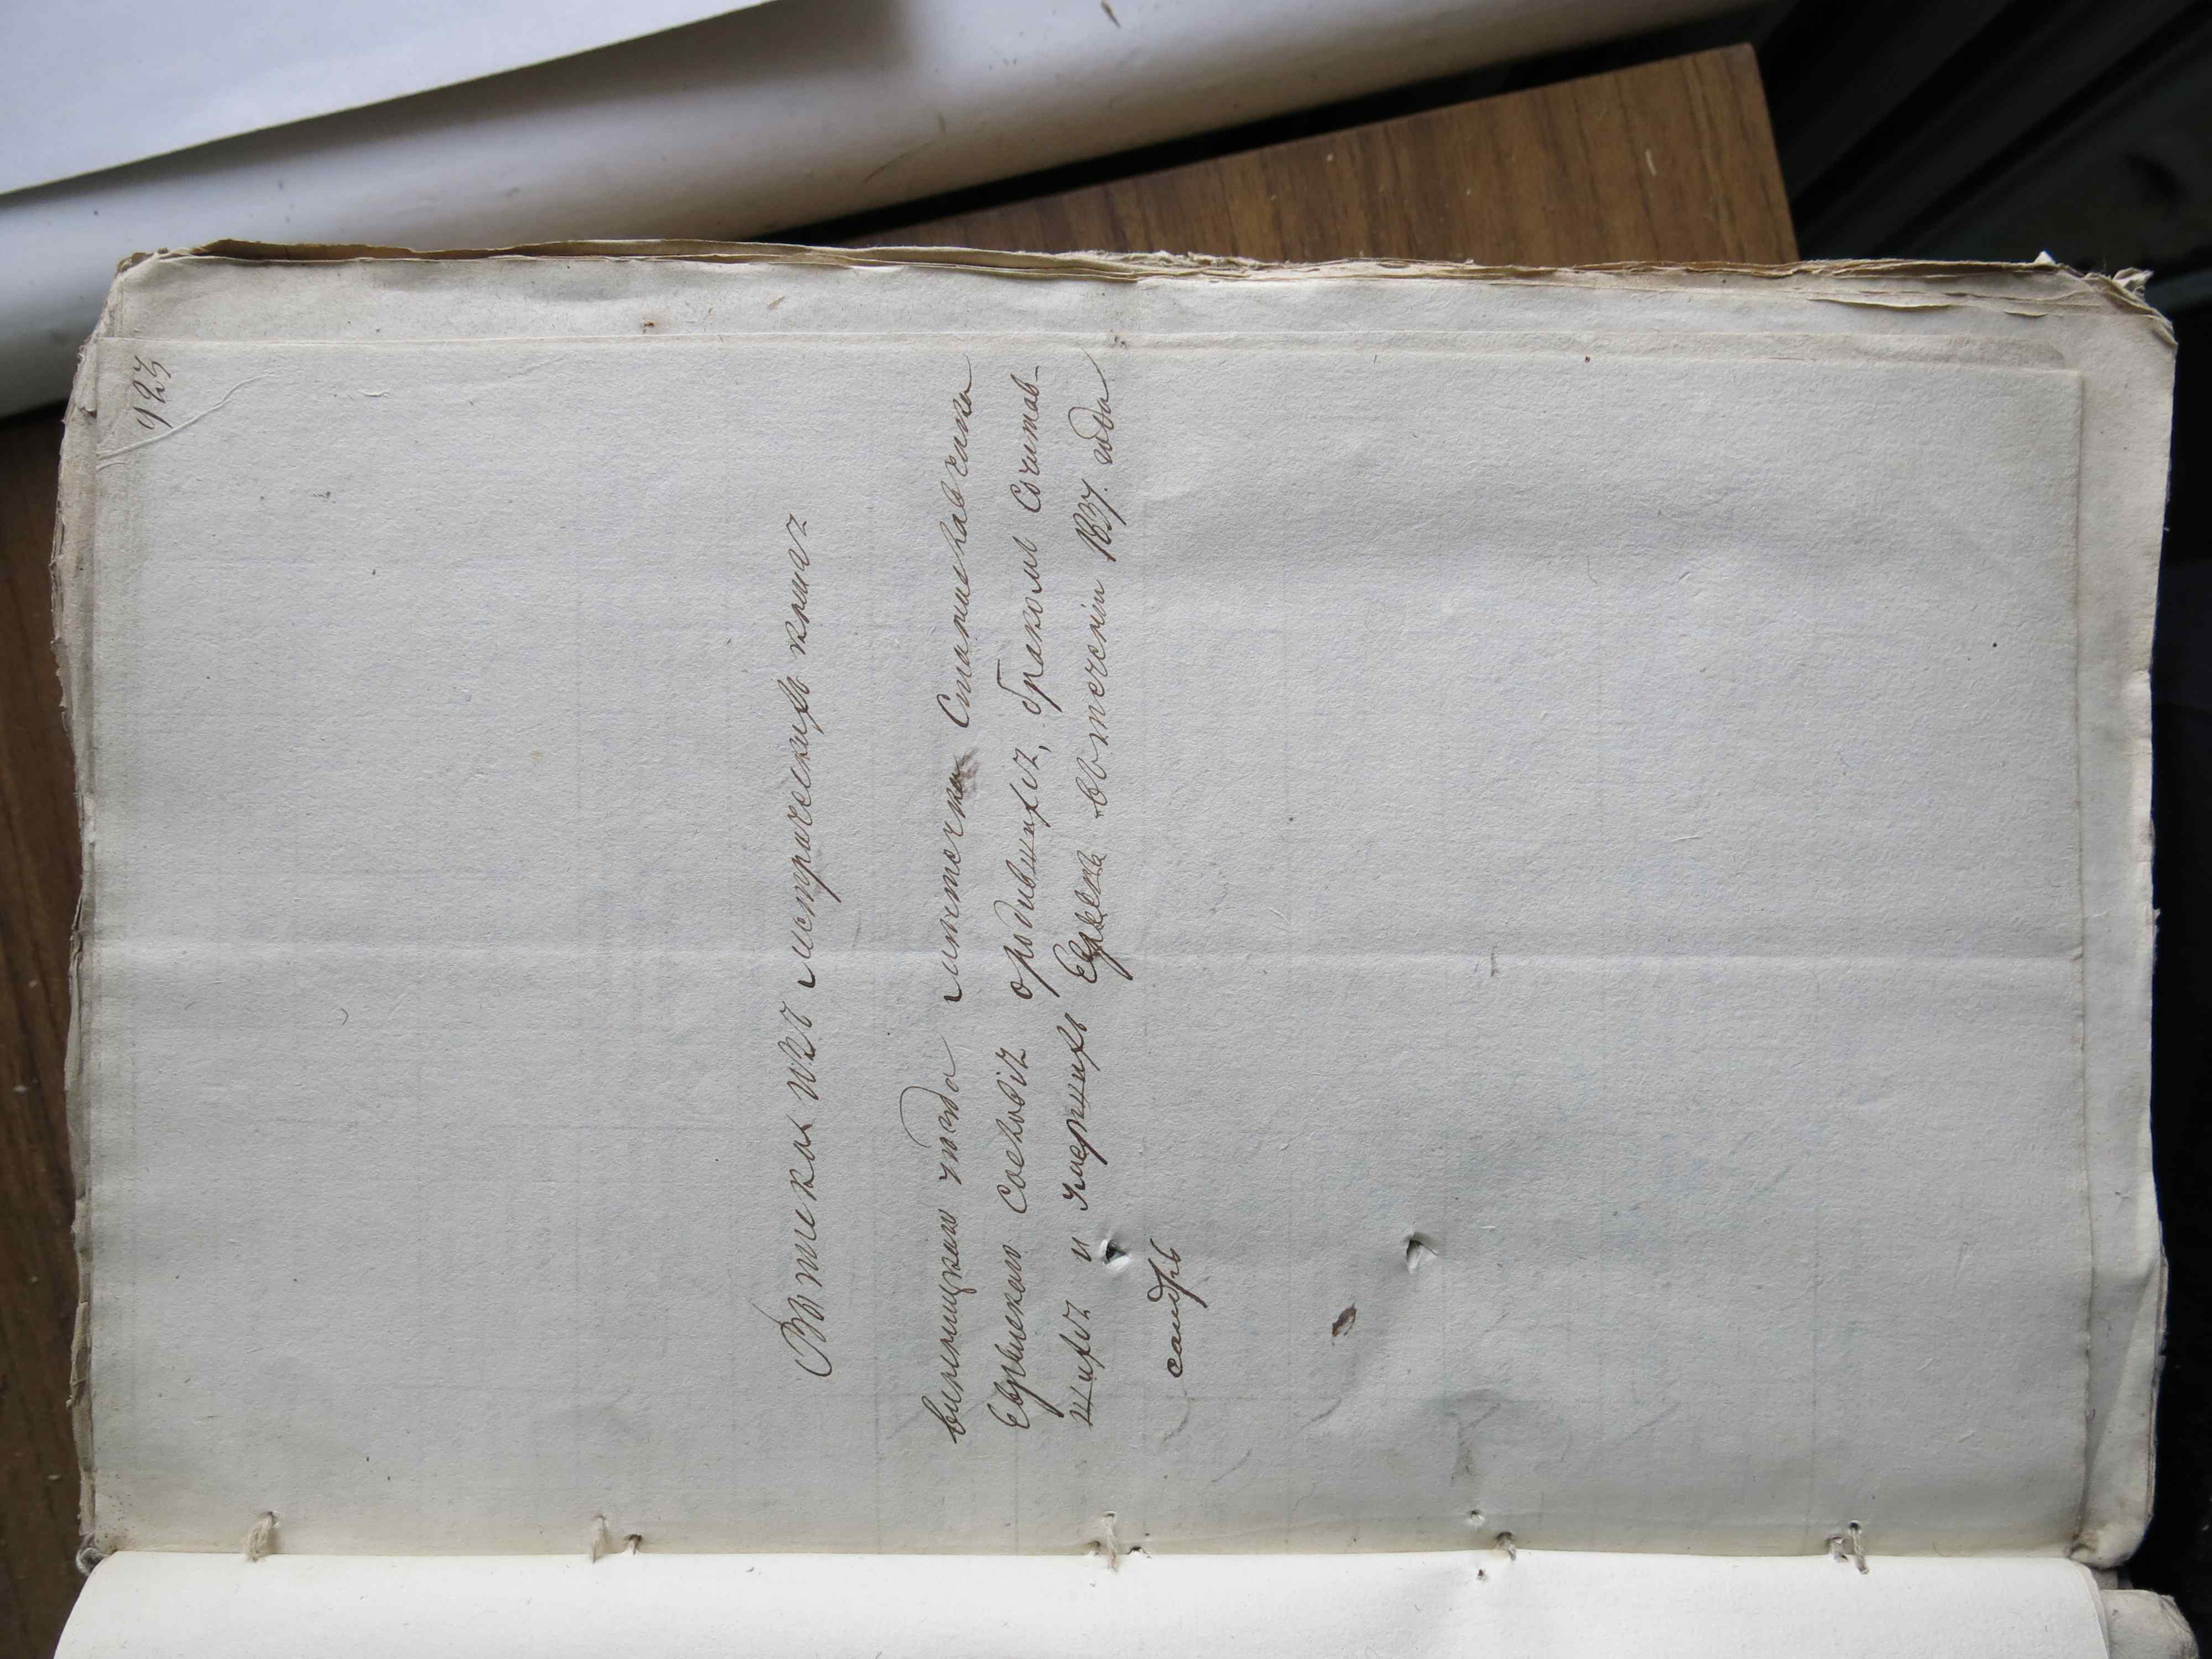 923
Выписка изъ метрическихъ книгъ
винницкаго уезда местечка Станиславчика
Еврейскаго Соеловіъ ородившихъ, бракомъ Сочитав-
шихъ и Умершихъ Евреевъ втечении 1837. года